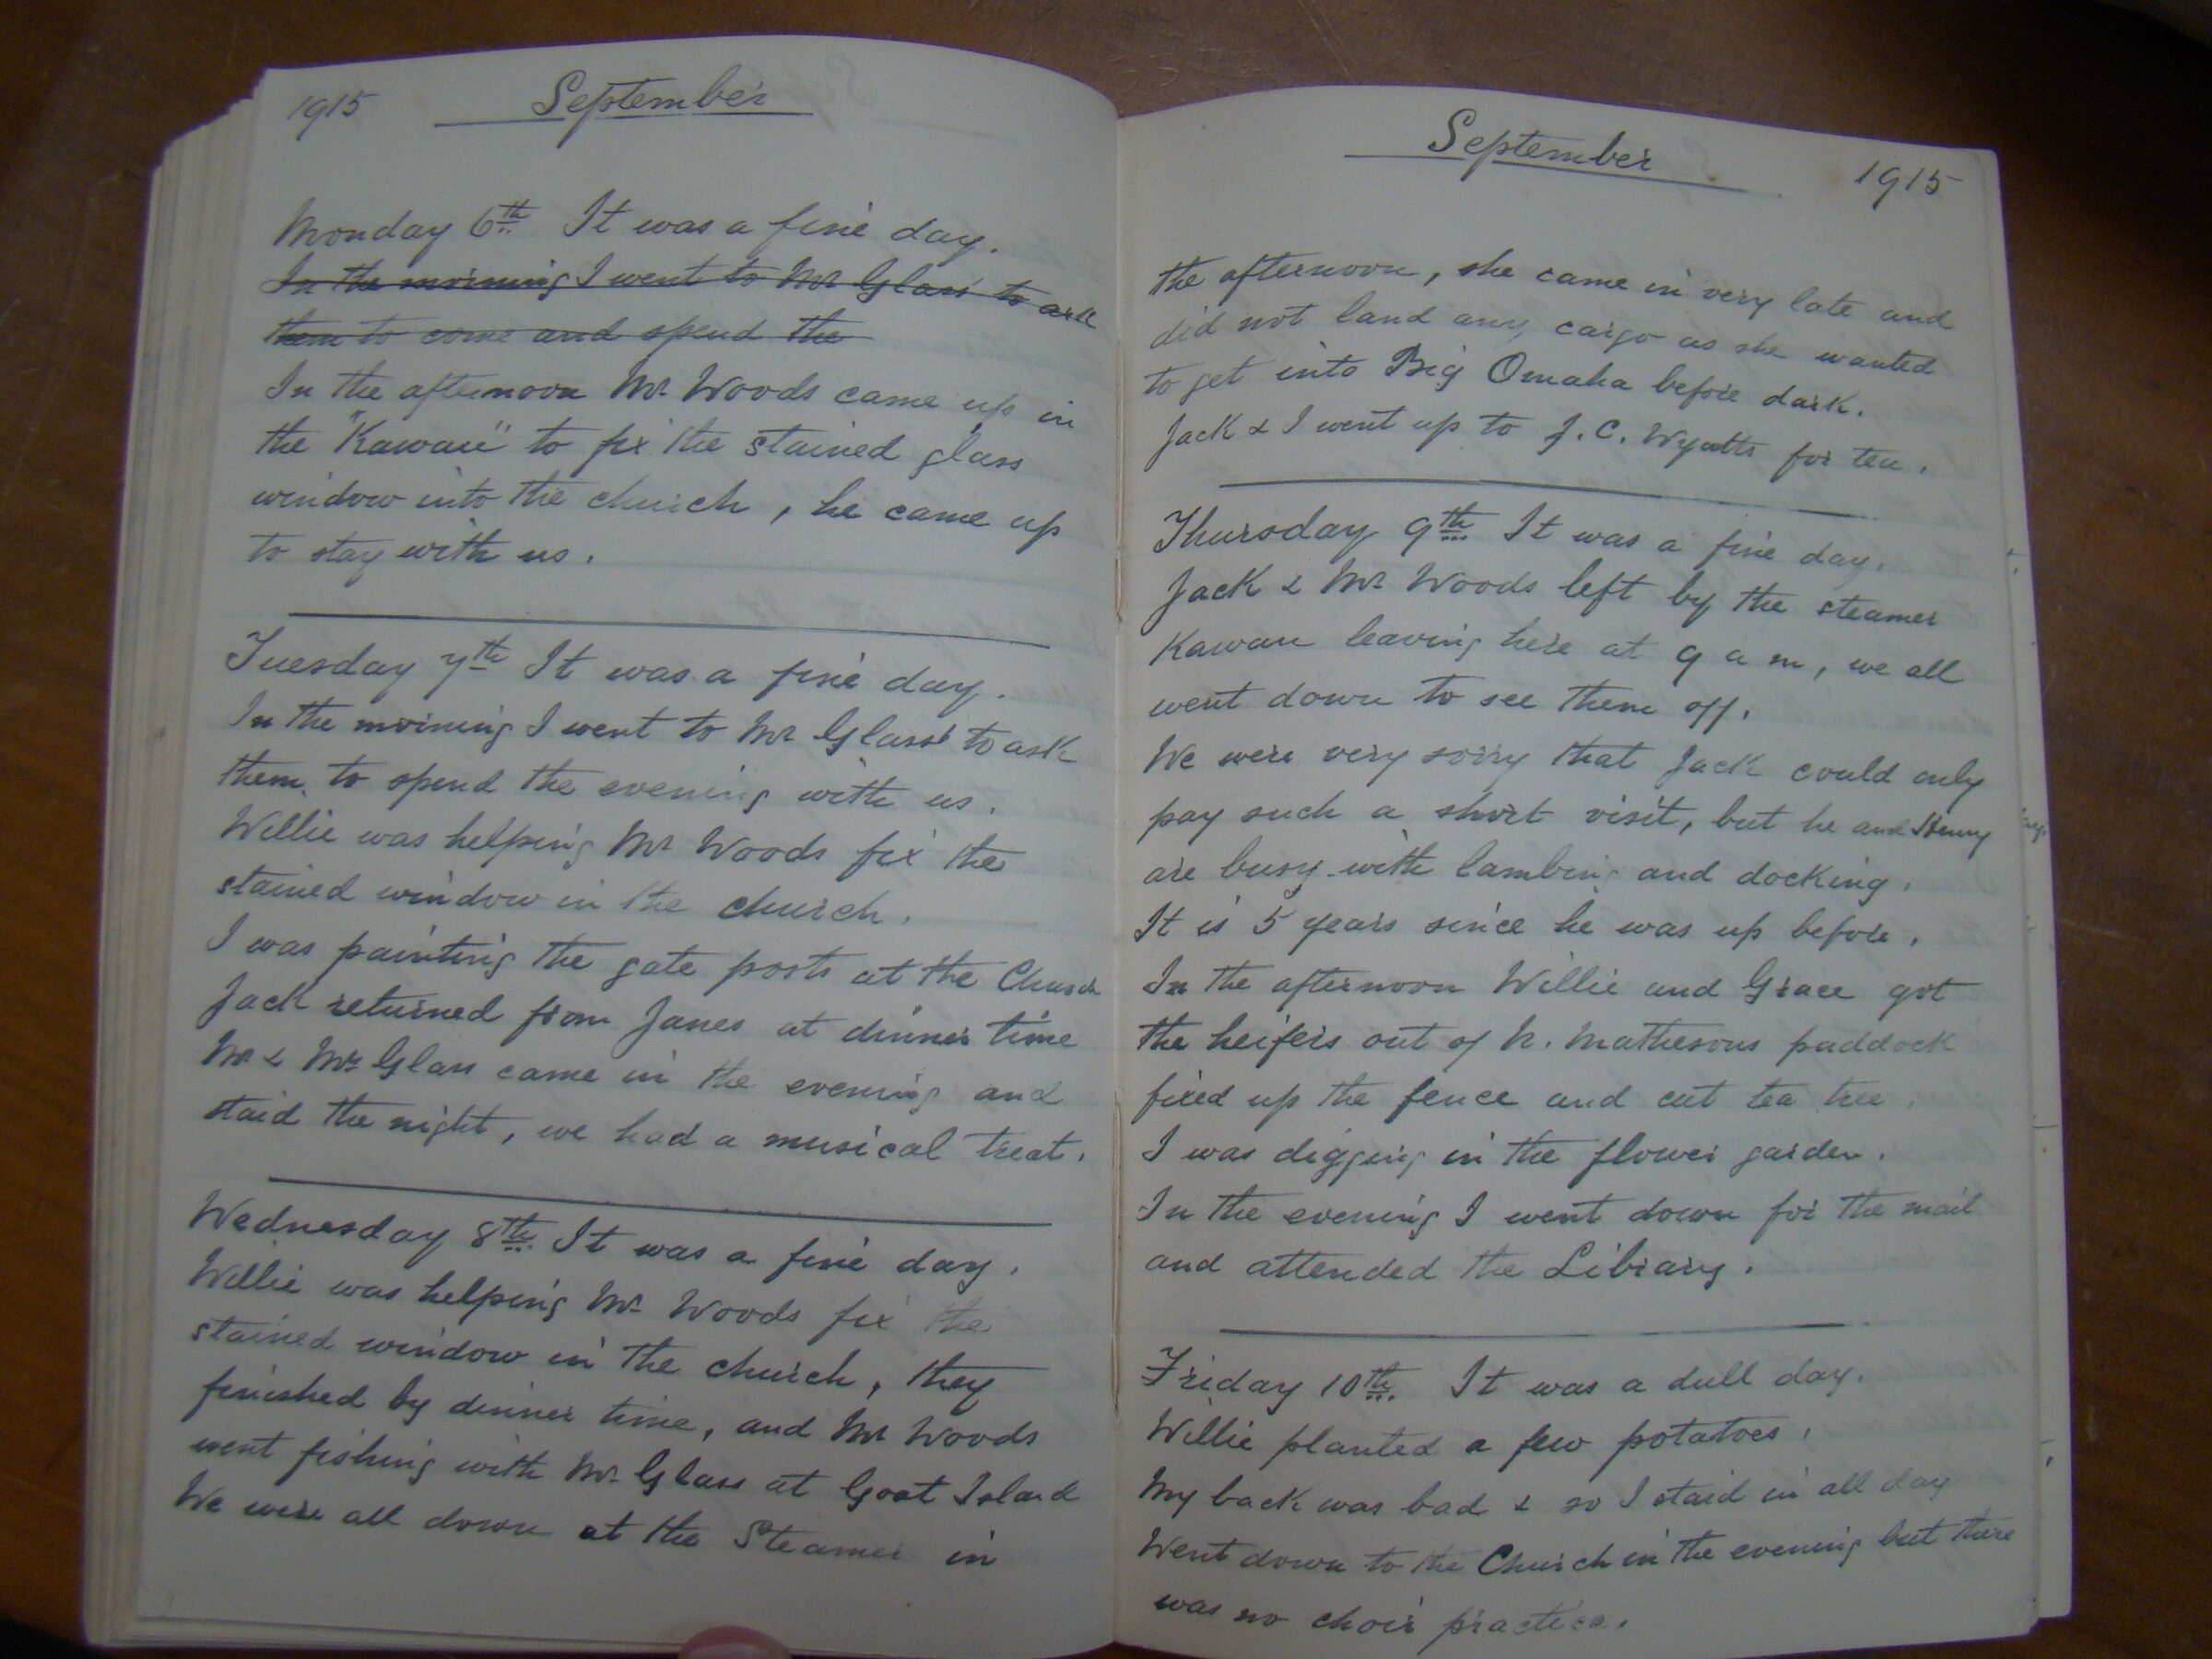 1915 September
Monday 6th It was a fine day.
In the morning I went to Mr Glass' to ask
them to come and spend the
In the afternoon Mr Woods came up in
the "Kawau" to fix the stained glass
window into the church, he came up
to stay with us.
Tuesday 7th It was a fine day.
In the morning I went to Mr Glass' to ask
them to spend the evening with us.
Willie was helping Mr Woods fix the
stained window in the church.
I was painting the gate posts at the Church
Jack returned from Janes at dinner time
Mr & Mrs Glass came in the evening and
staid the night, we had a musical treat.
Wednesday 8th It was a fine day.
Willie was helping Mr Woods fix the
stained window in the church, they
finished by dinner time, and Mr Woods
went fishing with Mr Glass at Goat Island
We were all down at the Steamer in
September 1915
the afternoon, she came in very late and
did not land any cargo as she wanted
to get into Big Omaha before dark.
Jack & I went up to J. C. Wyatts for tea.
Thursday 9th It was a fine day.
Jack & Mr Woods left by the steamer
Kawau leaving here at 9 a m, we all
went down to see them off.
We were very sorry that Jack could only
pay such a short visit, but he and Henry
are busy with lambing and docking.
It is 5 years since he was up before.
In the afternoon Willie and Grace got
the heifers out of N. Mathesons paddock
fixed up the fence and cut tea tree.
I was digging in the flower garden.
In the evening I went down for the mail
and attended the Library.
Friday 10th. It was a dull day.
Willie planted a few potatoes.
My back was bad & so I staid in all day
Went down to the Church in the evening but there
was no choir practice.